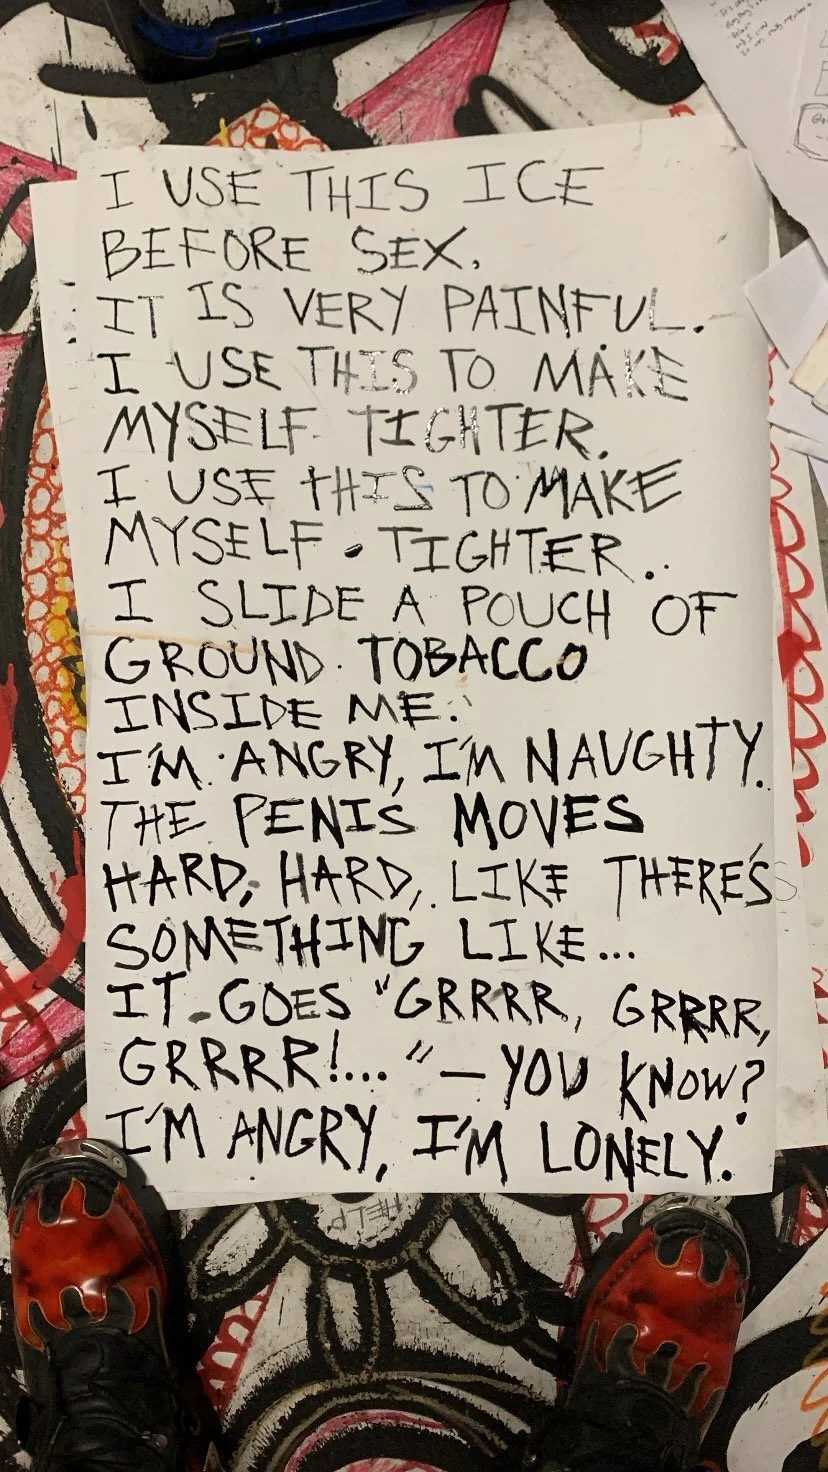 I USE THIS ICE
BEFORE SEX.
IT IS VERY PAINFUL.
I USE THIS TO MAKE
MYSELF TIGHTER.
I USE THIS TO MAKE
MYSELF TIGHTER..
I SLIDE A POUCH OF
GROUND TOBACCO
INSIDE ME.
I'M ANGRY, I'M NAUGHTY.
THE PENIS MOVES
HARD, HARD, LIKE THERE'S
SOMETHING LIKE...
IT GOES "GRRRR, GRRRR,
GRRRR!..." — YOU KNOW?
I'M ANGRY, I'M LONELY.
HELP